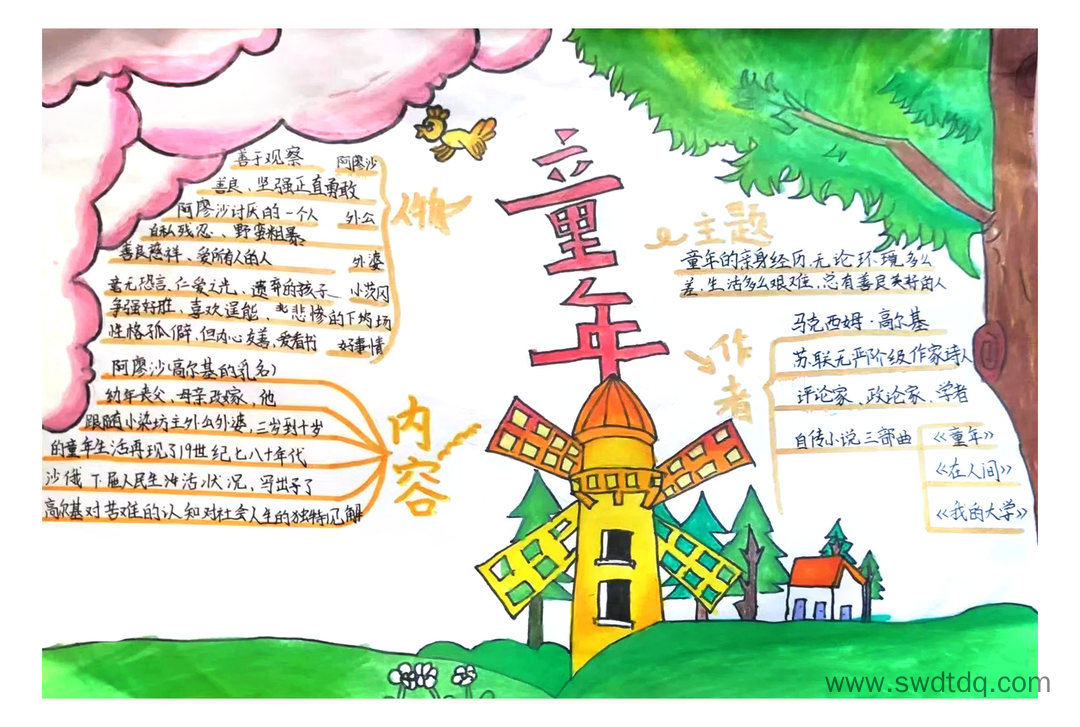 童年
人物
善于观察 阿廖沙
善良、坚强正直勇敢
阿廖沙讨厌的一个人 外公
自私残忍、野蛮粗暴
善良慈祥、爱所有人的人 外婆
毫无怨言、仁爱之光、遗弃的孩子 小茨冈
争强好胜、喜欢逞能、悲惨的下场
性格孤僻,但内心友善,爱看书 好事情
内容
阿廖沙(高尔基的乳名)
幼年丧父,母亲改嫁,他
跟随小染坊主外公外婆,三岁到十岁
的童年生活再现了19世纪七八十年代
沙俄下层人民生活状况,写出了
高尔基对苦难的认知对社会人生的独特见解
主题
童年的亲身经历,无论环境多么
差,生活多么艰难,总有善良美好的人
作者
马克西姆·高尔基
苏联无产阶级作家诗人
评论家、政论家、学者
自传小说三部曲 《童年》
《在人间》
《我的大学》
www.swdtdq.com